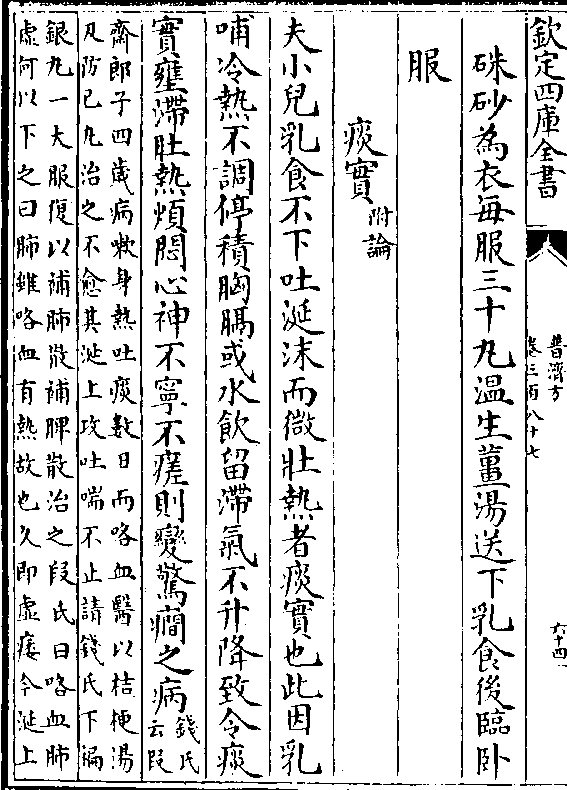 欽定四庫全書
普濟方
卷三百八十七
六十四
硃砂為衣每服三十丸温生薑湯送下乳食後臨卧
服
痰實附論
夫小兒乳食不下吐涎沫而微壯熱者痰實也此因乳
哺冷熱不調停積胸膈或水飲留滯氣不升降致令痰
實壅滯肚熱煩悶心神不寧不瘥則變驚癎之病錢氏
云段
齋郎子四歲病嗽身熱吐痰數日而咯血醫以桔梗湯
及防已丸治之不愈其涎上攻吐喘不止請錢氏下褊
銀丸一大服復以補肺散補脾散治之段氏曰咯血肺
虛何以下之曰肺雖咯血有熱故也久即虛痿今涎上